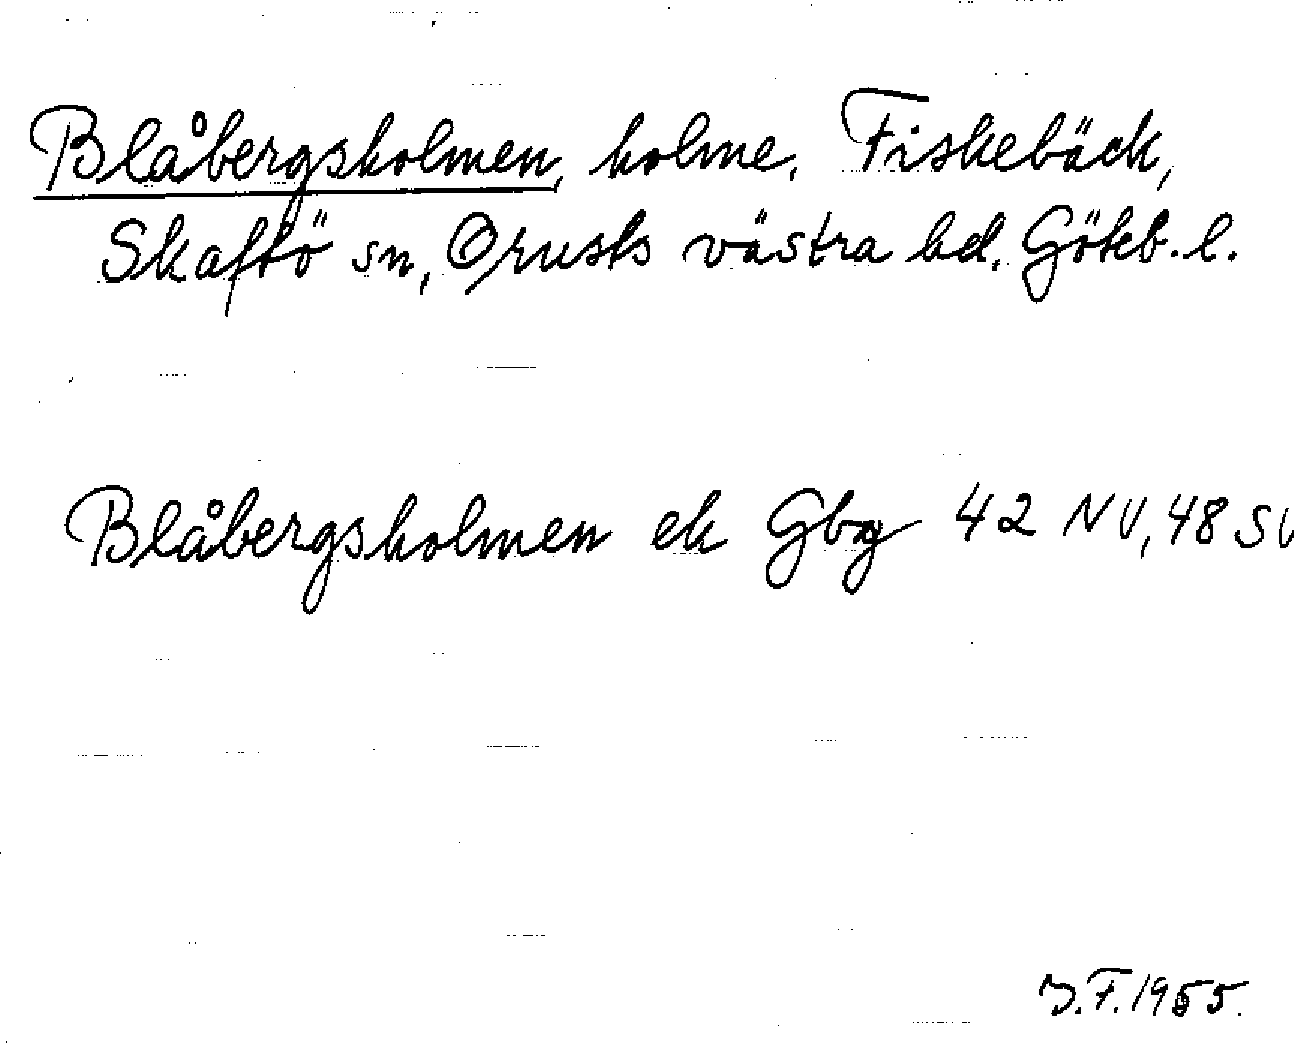 Blåbergsholmen, holme, Fiskebäck,
Skaftö sn, Orusts västra hd, Göteb. l.
Blåbergsholmen ek Gbg 42 NV, 48 SV
J.F. 1955.